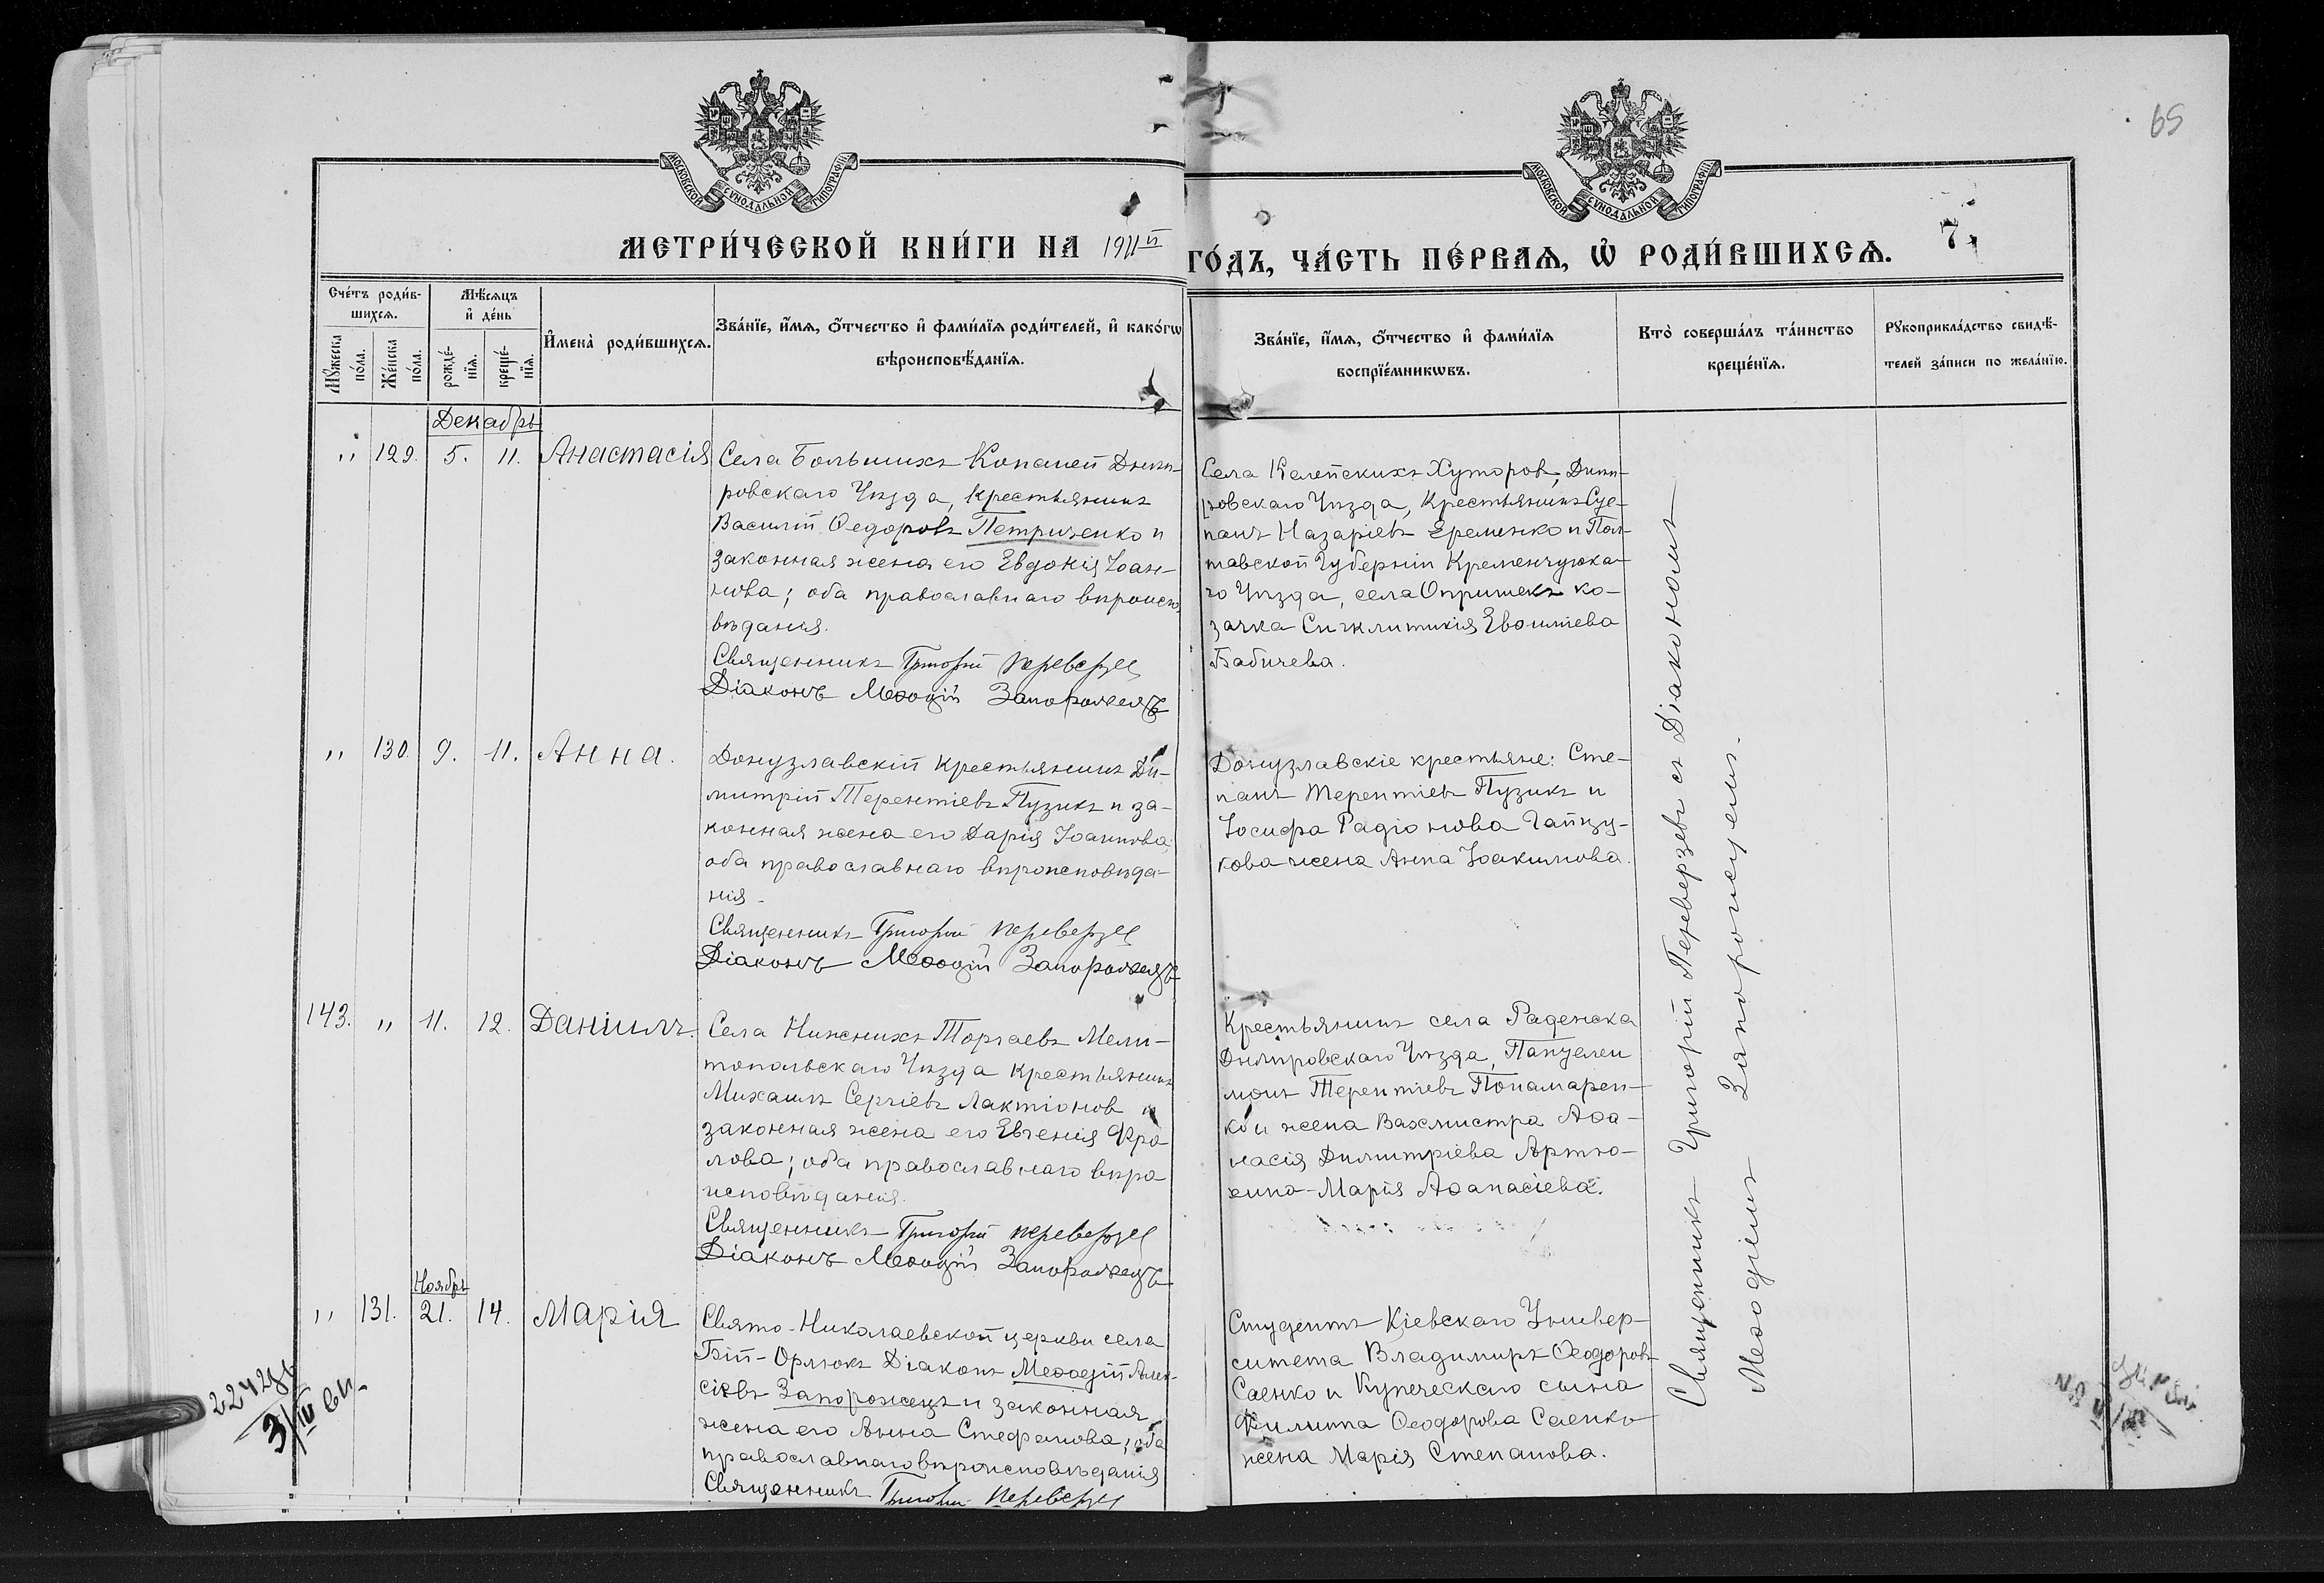 65
МОСКОВСКОЙ СУНОДАЛЬНОЙ ТИПОГРАФІИ
МОСКОВСКОЙ СУНОДАЛЬНОЙ ТИПОГРАФІИ
МЕТРИ́ЧЕСКОЙ КНИ́ГИ НА 1911й
ГО́ДЪ, ЧА́СТЬ ПЕ́РВАѦ, Ѡ҆ РОДИ́ВШИХСѦ. 7.
Сче́тъ роди́в-
шихсѧ.
Мꙋ́жеска по́ла.
Же́нска по́ла.
Мѣ́сѧцъ
и҆ де́нь
рожде́-
нїѧ.
креще́-
нїѧ.
И҆мена̀ роди́вшихсѧ.
Зва́нїе, и҆́мѧ, ѻ҆́тчество и҆ фами́лїѧ роди́телей, и҆ како́гѡ
вѣроисповѣ́данїѧ.
Зва́нїе, и҆́мѧ, ѻ҆́тчество и҆ фами́лїѧ
воспрїе́мникѡвъ.
Кто̀ соверша́лъ та́инство
креще́нїѧ.
Рꙋкоприкла́дство свидѣ́-
телей за́писи по жела́нїю.
Декабрь
" 129. 5. 11. Анастасія
Села Большихъ Копаней Днѣп-
ровскаго Уѣзда, крестьянинъ
Василій Ѳедоровъ Петриченко и
законная жена его Евдокія Іоан-
нова; оба православнаго вѣроиспо
вѣданія.
Священникъ Григорій Переверзевъ
Діаконъ Меѳодій Запорожецъ
Села Келейскихъ Хуторовъ, Днѣп-
ровскаго Уѣзда, Крестьянинъ Сте-
панъ Назаріевъ Еременко и Пол-
тавской Губерніи Кременчугска-
го Уѣзда, села Опришекъ ко-
зачка Сигклитикія Евѳиміева
Бабичева.
" 130. 9. 11. Анна.
Донузлавскій крестьянинъ Ди-
митрій Терентіевъ Пузикъ и за-
конная жена его Дарія Іоаннова
оба православнаго вѣроисповѣда-
нія.
Священникъ Григорій Переверзевъ
Діаконъ Меѳодій Запорожецъ
Донузлавскіе крестьяне: Сте-
панъ Терентіевъ Пузикъ и
Іосифа Радіонова Гайду-
кова жена Анна Іоакимова.
143. " 11. 12. Даніилъ.
Села Нижнихъ Торгаевъ Мели-
топольскаго Уѣзда крестьянинъ
Михаилъ Сергіевъ Лактіонов и
законная жена его Евгенія Фро
лова; оба православнаго вѣро
исповѣданія.
Священникъ Григорій Переверзевъ
Діаконъ Меѳодій Запорожецъ
Крестьянинъ села Раденска
Днѣпровскаго Уѣзда, Пантелеи
монъ Терентіевъ Понамарен-
ко и жена Вахмистра Аѳа-
насія Димитріева Артю-
хина-Марія Аѳанасіева.
Ноябрь
" 131. 21. 14. Марія
Свято-Николаевской церкви села
Бій-Орлюкъ Діаконъ Меѳодій Алек-
сіевъ Запорожецъ и законная
жена его Анна Стефанова; оба
православнаго вѣроисповѣданія
Священникъ Григорій Переверзевъ
Студентъ Кіевскаго Универ-
ситета Владимиръ Ѳеодоровъ
Саенко и Купеческаго сына
Филиппа Ѳеодорова Саенко
жена Марія Степанова.
Священникъ Григорій Переверзевъ съ Діакономъ
Меѳодіемъ Запорожцемъ.
3/IV